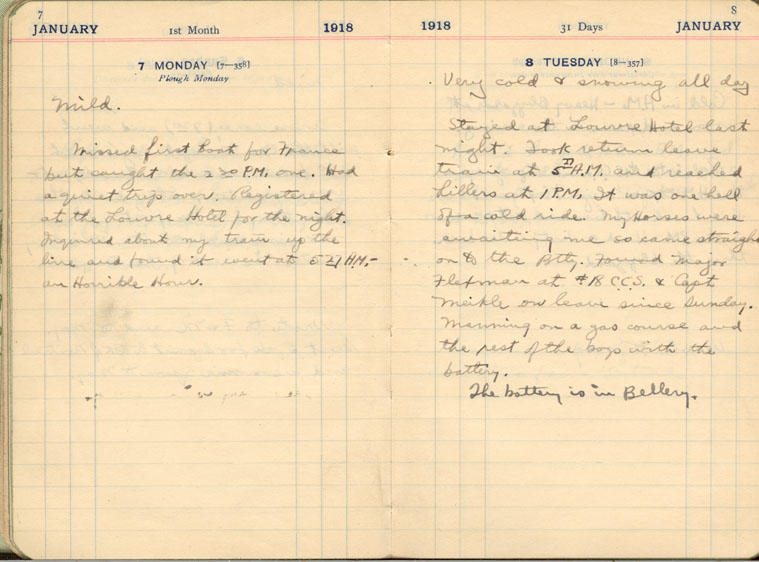 7
JANUARY 1st Month 1918
7 MONDAY [7—358]
Plough Monday
Mild.
Missed first boat for France
but caught the 2 30 P.M. one. Had
a quiet trip over. Registered
at the Louvre Hotel for the night.
Inquired about my train up the
line and found it went at 5 21 A.M.-
an Horrible Hour.
8
1918 31 Days JANUARY
8 TUESDAY [8—357]
Very cold & snowing all day
Stayed at Louvre Hotel last
night. Took return leave
train at 5 21 A.M. and reached
Lillers at 1 P.M. It was one hell
of a cold ride. My Horses were
awaiting me so came straight
on to the Btty. Found Major
at #18 C.C.S. & Capt
Meikle on leave since Sunday.
Manning on a gas course and
the rest of the boys with the
battery.
The battery is in Bellery.